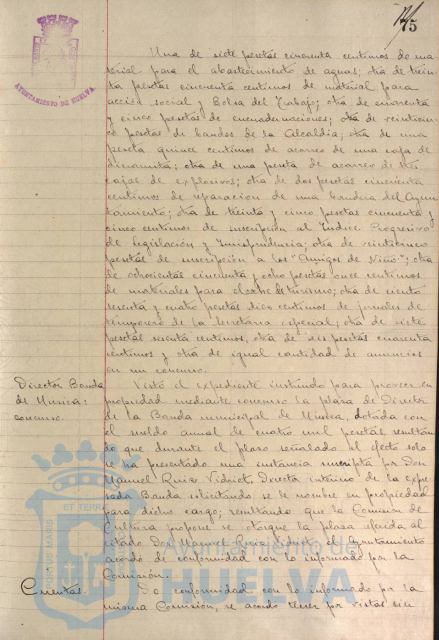 75
AYUNTAMIENTO DE HUELVA
Una de siete pesetas cincuenta centimos de ma
terial para el abastecimiento de aguas; otra de trein
ta pesetas cincuenta centimos de material para
acción social y Bolsa del Trabajo; otra de cincuenta
y cinco pesetas de encuadernaciones; otra de veinticin
co pesetas de bandos de la Alcaldia; otra de una
peseta quince centimos de acarreo de una caja de
dinamita; otra de una peseta de acarreo de tres
cajas de explosivos; otra de dos pesetas cincuenta
centimos de reparacion de una bandera del Ayun
tamiento; otra de treinta y cinco pesetas cincuenta y
cinco centimos de suscripcion al Indice Progresivo
de Legislación y Jurisprudencia; otra de veinticinco
pesetas de suscripcion a los "Amigos del Niño"; otra
de ochocientas cincuenta y ocho pesetas once centimos
de materiales para el coche de turismo; otra de ciento
sesenta y cuatro pesetas diez centimos de jornales de
temporero de la Secretaria especial; otra de siete
pesetas sesenta centimos, otra de seis pesetas cuarenta
centimos y otra de igual cantidad de anuncios
en un concurso.
Director Banda
de Musica:
concurso.
Visto el expediente instruido para proveer en
propiedad mediante concurso la plaza de Director
de la Banda municipal de Musica, dotada con
el sueldo anual de cuatro mil pesetas resultan
do que durante el plazo señalado al efecto solo
se ha presentado una instancia suscripta por Don
Manuel Ruiz Vidriet, Director interino de la expre
sada Banda solicitando se le nombre en propiedad
para dicho cargo; resultando que la Comisión de
Cultura propone se otorgue la plaza referida al
citado Don Manuel Ruiz Vidriet, el Ayuntamiento
acordó de conformidad con lo informado por la
Comisión.
Cuentas.
De conformidad con lo informado por la
misma Comisión, se acordó tener por vistas sin
Ayuntamiento de
HUELVA